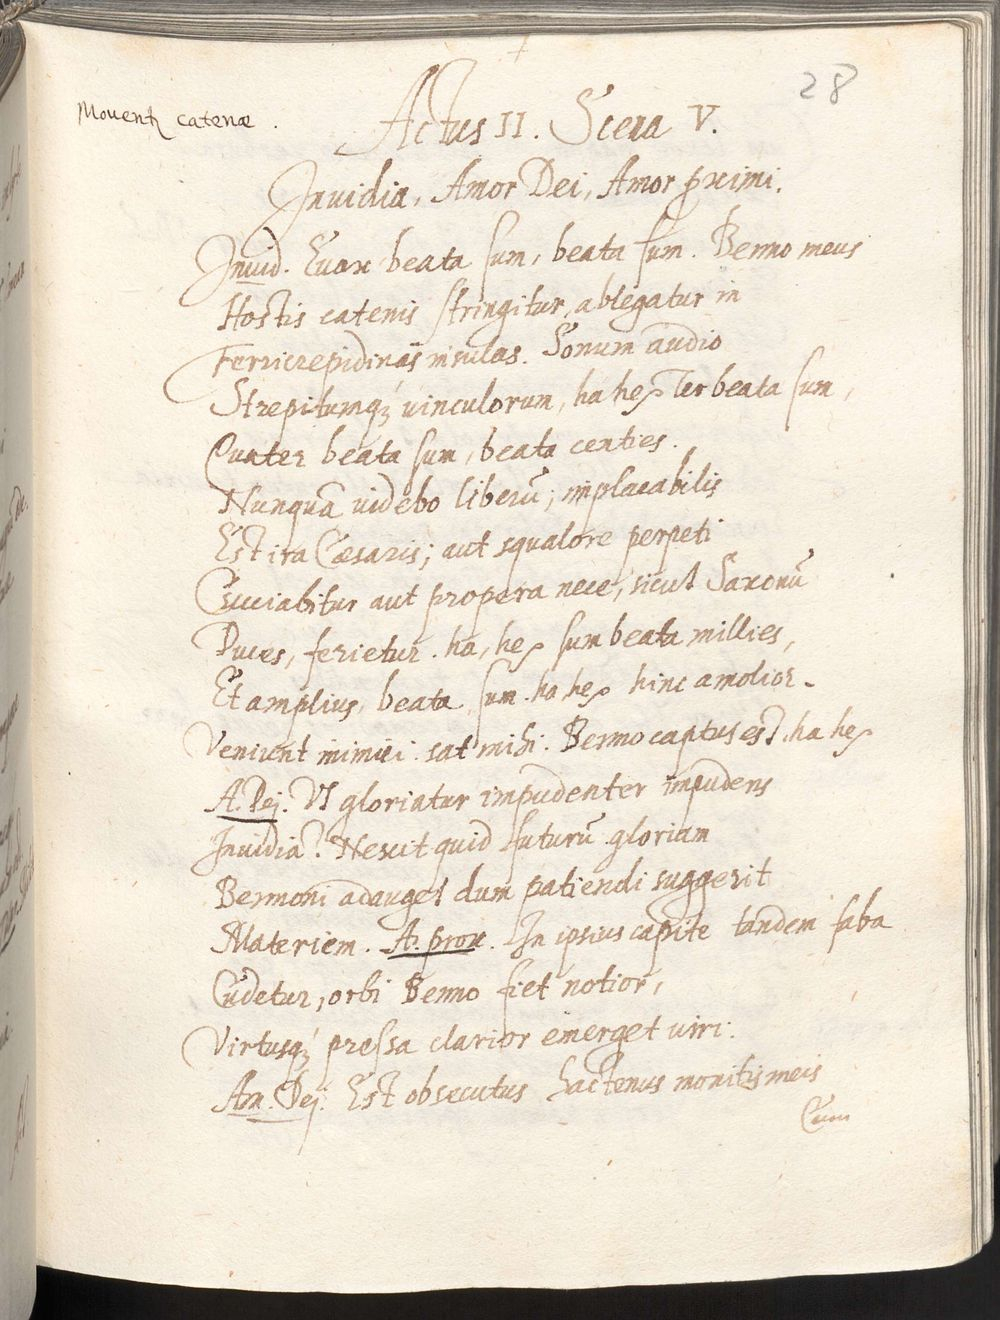 28
Moventr catenæ.
Actus II. Scena V.
Inuidia, Amor Dei, Amor pximi.
Inuid. Euax beata sum, beata sum. Benno meus
Hostis catenis stringitur, ablegatur in
Ferricrepidinas insulas. Sonum audio
Strepitumq; uinculorum, ha he, Ter beata sum,
Quater beata sum, beata centies.
Nunquā uidebo liberū; implacabilis
Est ira Cæsaris; aut squalore perpeti
Cruciabitur aut propera nece, sicut Saxonū
Duces, ferietur. ha, he, sum beata millies,
Et amplius, beata sum. ha he, hinc amolior.
Veniunt inimici. sat mihi. Benno captus est. ha he,
A. Dej. Vt gloriatur impudenter impudens
Inuidia? Nescit quid futurū. gloriam
Bennoni adauget dum patiendi suggerit
Materiem. A. prox. In ipsius capite tandem faba
Cudetur, orbi Benno fiet notior,
Virtusq; pressa clarior emerget uiri.
Am. Dej. Est obsecutus hactenus monitis meis